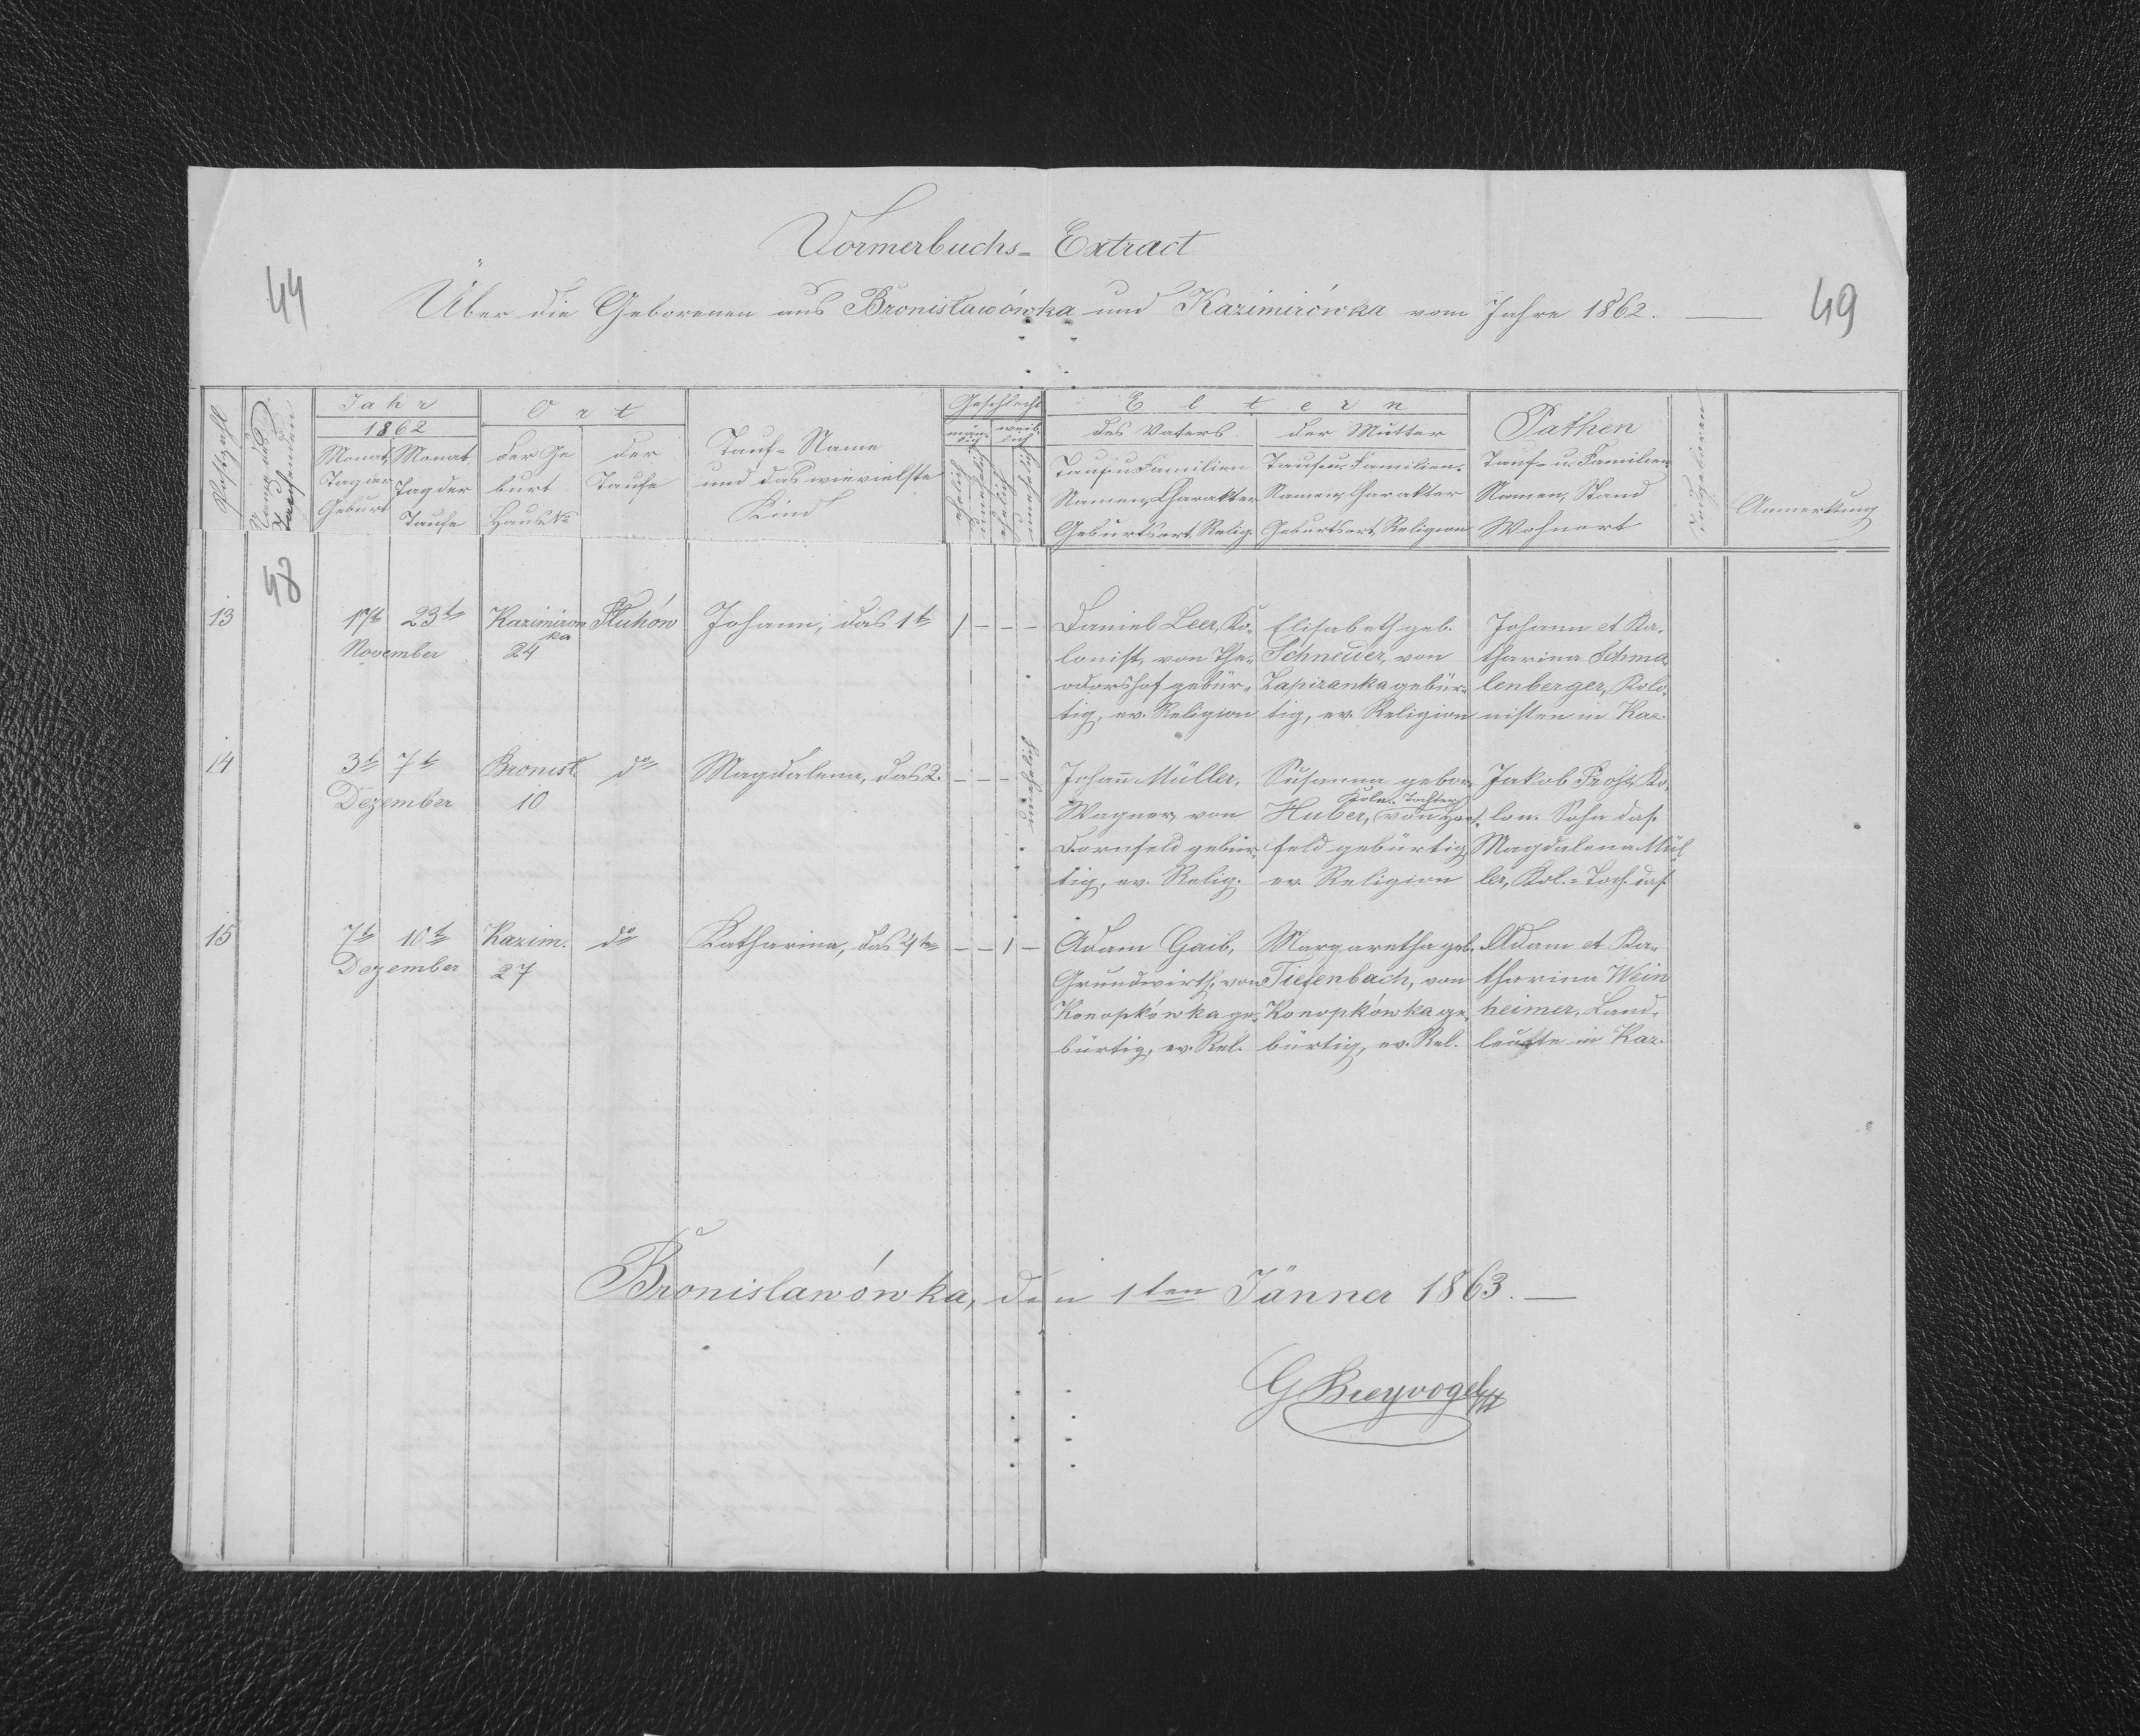 Vormerbuchs- Extract
44
Über die Geborenen aus Bronisławówka und Kazimirówka vom Jahre 1862. —
49
Postzahl
Name des Taufenden
Jahr
1862
Monat, Tag der Geburt
Monat, Tag der Taufe
Ort
der Geburt Haus No
der Taufe
Tauf-Name
und das wievielste
Kind
Geschlecht
männlich
weiblich
ehelich
unehelich
ehelich
unehelich
Eltern
des Vaters
der Mutter
Tauf u Familien
Namen, Charakter
Geburtsort, Relig.
Tauf u. Familien-
Namen, Charakter
Geburtsort, Religion
Pathen
Tauf- u. Familien
Namen, Stand
Wohnort
Todtgeboren
Anmerkung
48
13
17t 23t
November
Kazimirow
ka
24
Płuhów
Johann, das 1t
1 - - -
Daniel Leer, Ko-
lonist, von The-
odorshof gebür-
tig, ev. Religion
Elisabeth geb.
Schneuer, von
Zapizanka gebür-
tig, ev. Religion
Johann et Ka-
tharina Schma-
lenberger, Kolo-
nisten in Kaz.
14
3t 7t
Dezember
Bronisł.
10
do
Magdalena, das 2.
- - - unehelich
Johan̄ Müller,
Wagner, von
Dornfeld gebür-
tig, ev. Relig.
Susanna gebor.
Kolo.- Tochter
Huber, von
feld gebürtig,
ev. Religion
Jakob Frohs, Ko-
lon. Sohn das.
Magdalena Mül
ler, Kol.- Toch. das.
15
7t 10t
Dezember
Kazim.
27
do
Katharina, das 4te
- - 1 -
Adam Gaib,
Grundwirth, von
Konopkówka ge-
bürtig, ev. Rel.
Margaretha geb.
Tiefenbach, von
Konopkówka ge-
bürtig, ev. Rel.
Adam et Ka-
tharina Wein
heimer, Land-
leute in Kaz.
Bronislawówka, den 1ten Jänner 1863. —
G Breyvogel